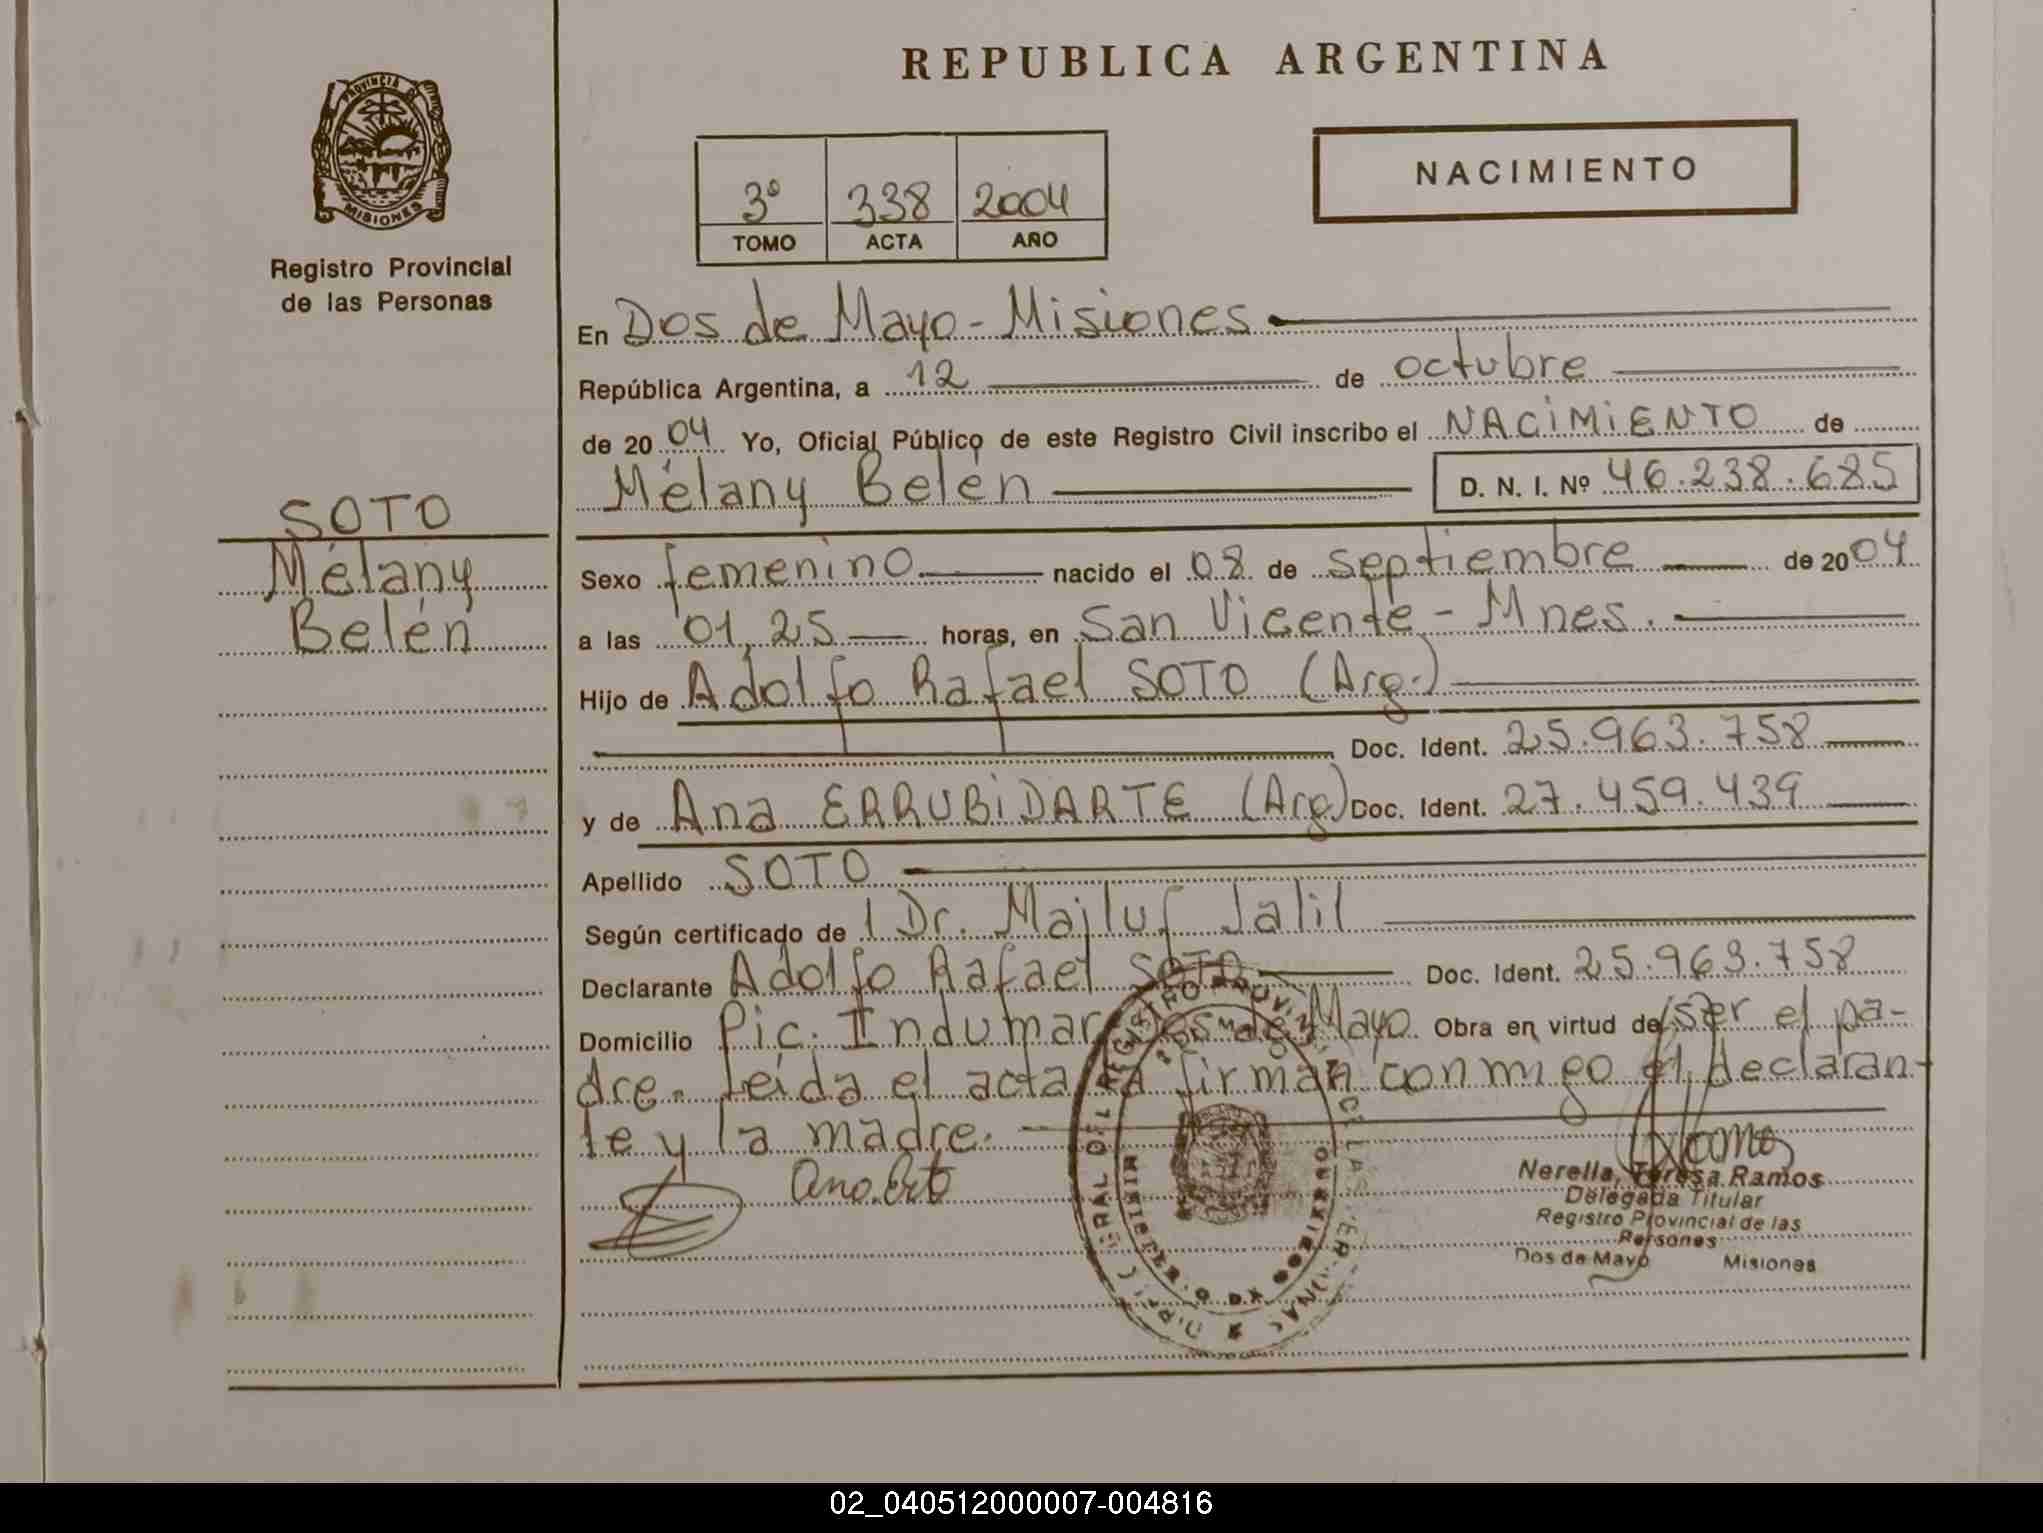 REPUBLICA ARGENTINA
PROVINCIA DE
MISIONES
Registro Provincial
de las Personas
NACIMIENTO
3º 338 2004
TOMO ACTA AÑO
En Dos de Mayo - Misiones
República Argentina, a 12 de octubre
de 2004 Yo, Oficial Público de este Registro Civil inscribo el NACIMIENTO de
Mélany Belén D. N. I. Nº 46.238.685
SOTO
Mélany
Belén
Sexo femenino nacido el 08 de septiembre de 2004
a las 01,25 horas, en San Vicente - Mnes.
Hijo de Adolfo Rafael SOTO (Arg.)
Doc. Ident. 25.963.758
y de Ana ERRUBIDARTE (Arg) Doc. Ident. 27.459.439
Apellido SOTO
Según certificado de l Dr. Mailuf Jalil
Declarante Adolfo Rafael SOTO Doc. Ident. 25.963.758
Domicilio Pic. Indumar Dos de Mayo Obra en virtud de ser el pa-
dre. Leída el acta la firman conmigo el declaran-
te y la madre.
Nerella Teresa Ramos
Delegada Titular
Registro Provincial de las
Persones
Dos de Mayo Misiones
02_040512000007-004816